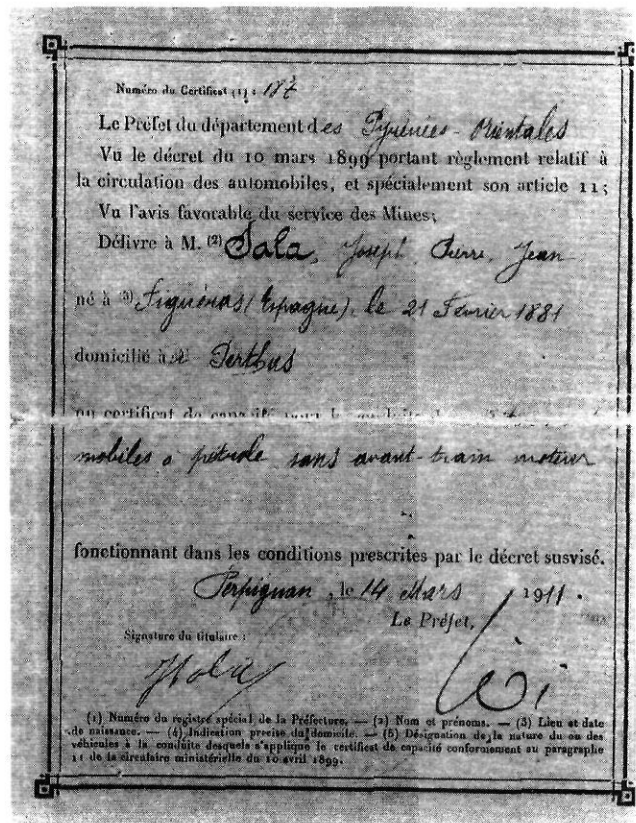 Numéro du Certificat (1) : 187
Le Préfet du département des Pyrénées-Orientales
Vu le décret du 10 mars 1899 portant règlement relatif à
la circulation des automobiles, et spécialement son article 11;
Vu l'avis favorable du service des Mines;
Délivre à M. (2) Sala, Joseph, Pierre, Jean
né à (3) Figuéras (Espagne), le 21 Février 1881
domicilié à Perthus
un certificat de capacité pour la conduite
mobiles à pétrole sans avant-train moteur
fonctionnant dans les conditions prescrites par le décret susvisé.
Perpignan, le 14 Mars 1911.
Le Préfet,
Signature du titulaire :
(1) Numéro du registre spécial de la Préfecture. — (2) Nom et prénoms. — (3) Lieu et date
de naissance. — (4) Indication précise du domicile. — (5) Désignation de la nature du ou des
véhicules à la conduite desquels s'applique le certificat de capacité conformément au paragraphe
11 de la circulaire ministérielle du 10 avril 1899.